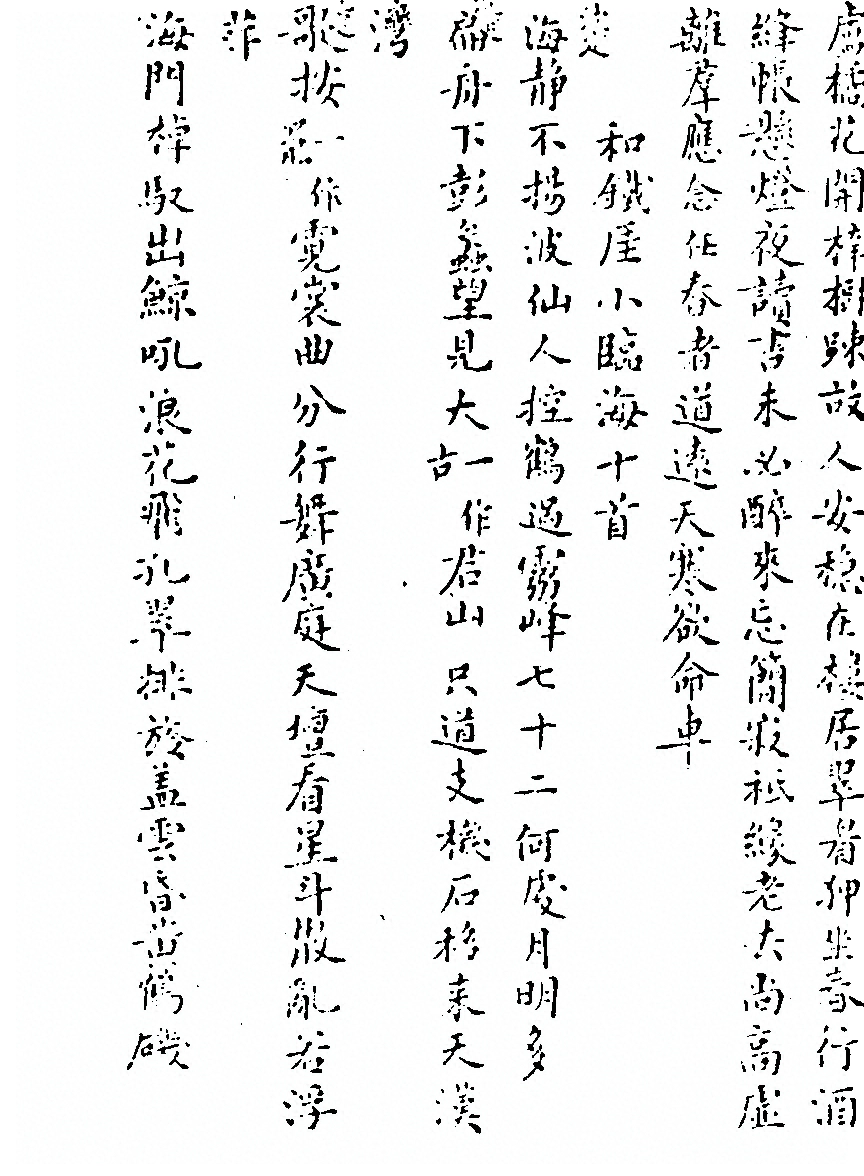 盧橘花開梓樹踈故人安穩在樓居翠眉狎坐春行酒
絳帳懸燈夜讀書未必醉來忘簡寂祗緣老大尚高虛
離羣應念任春者道遠天寒欲命車
和鐵厓小臨海十首
海静不揚波仙人控鶴過霧峰七十二何處月明多
舟下彭蠡望見大一作古君山只道支機石移來天漢
灣
歌按一作霓裳曲分行舞廣庭天壇看星斗散亂若浮
海門棹馭出鯨吼浪花飛孔翠排旋蓋雲昏黄鶴磯